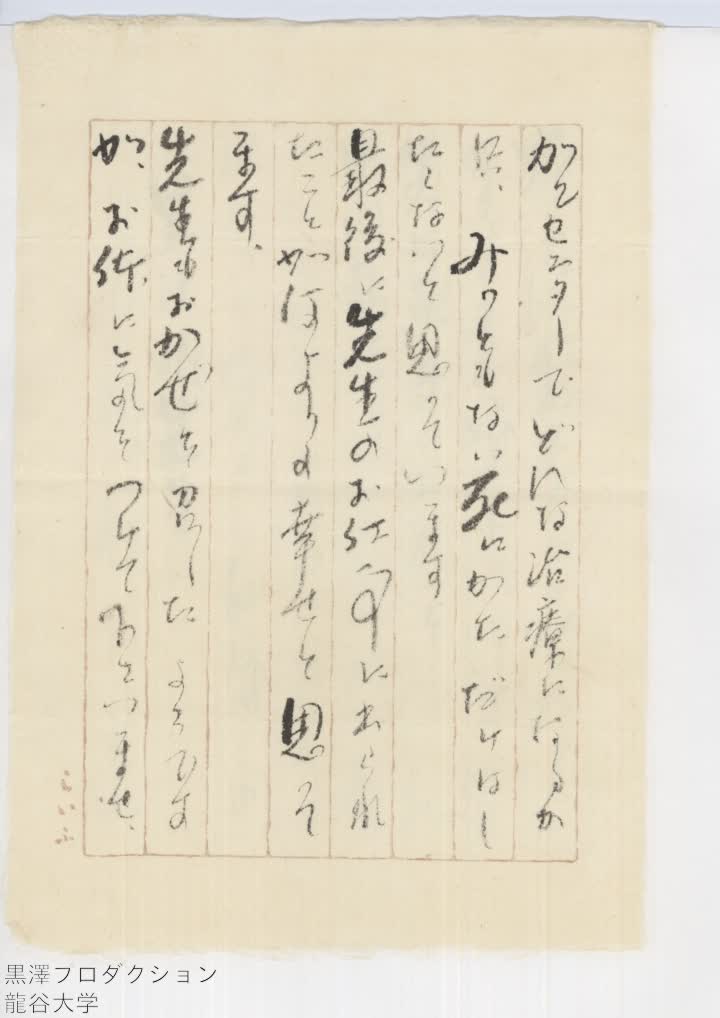 がんセンターでどんな治療になるか
は、みっともない死にかただけはし
たくないと思っています
最後に先生のお仕事に出られ
たこと何よりの幸せと思って
ます、
先生もおかぜを召したようです
が、お体に気をつけて下さいませ、
黒澤プロダクション
龍谷大学